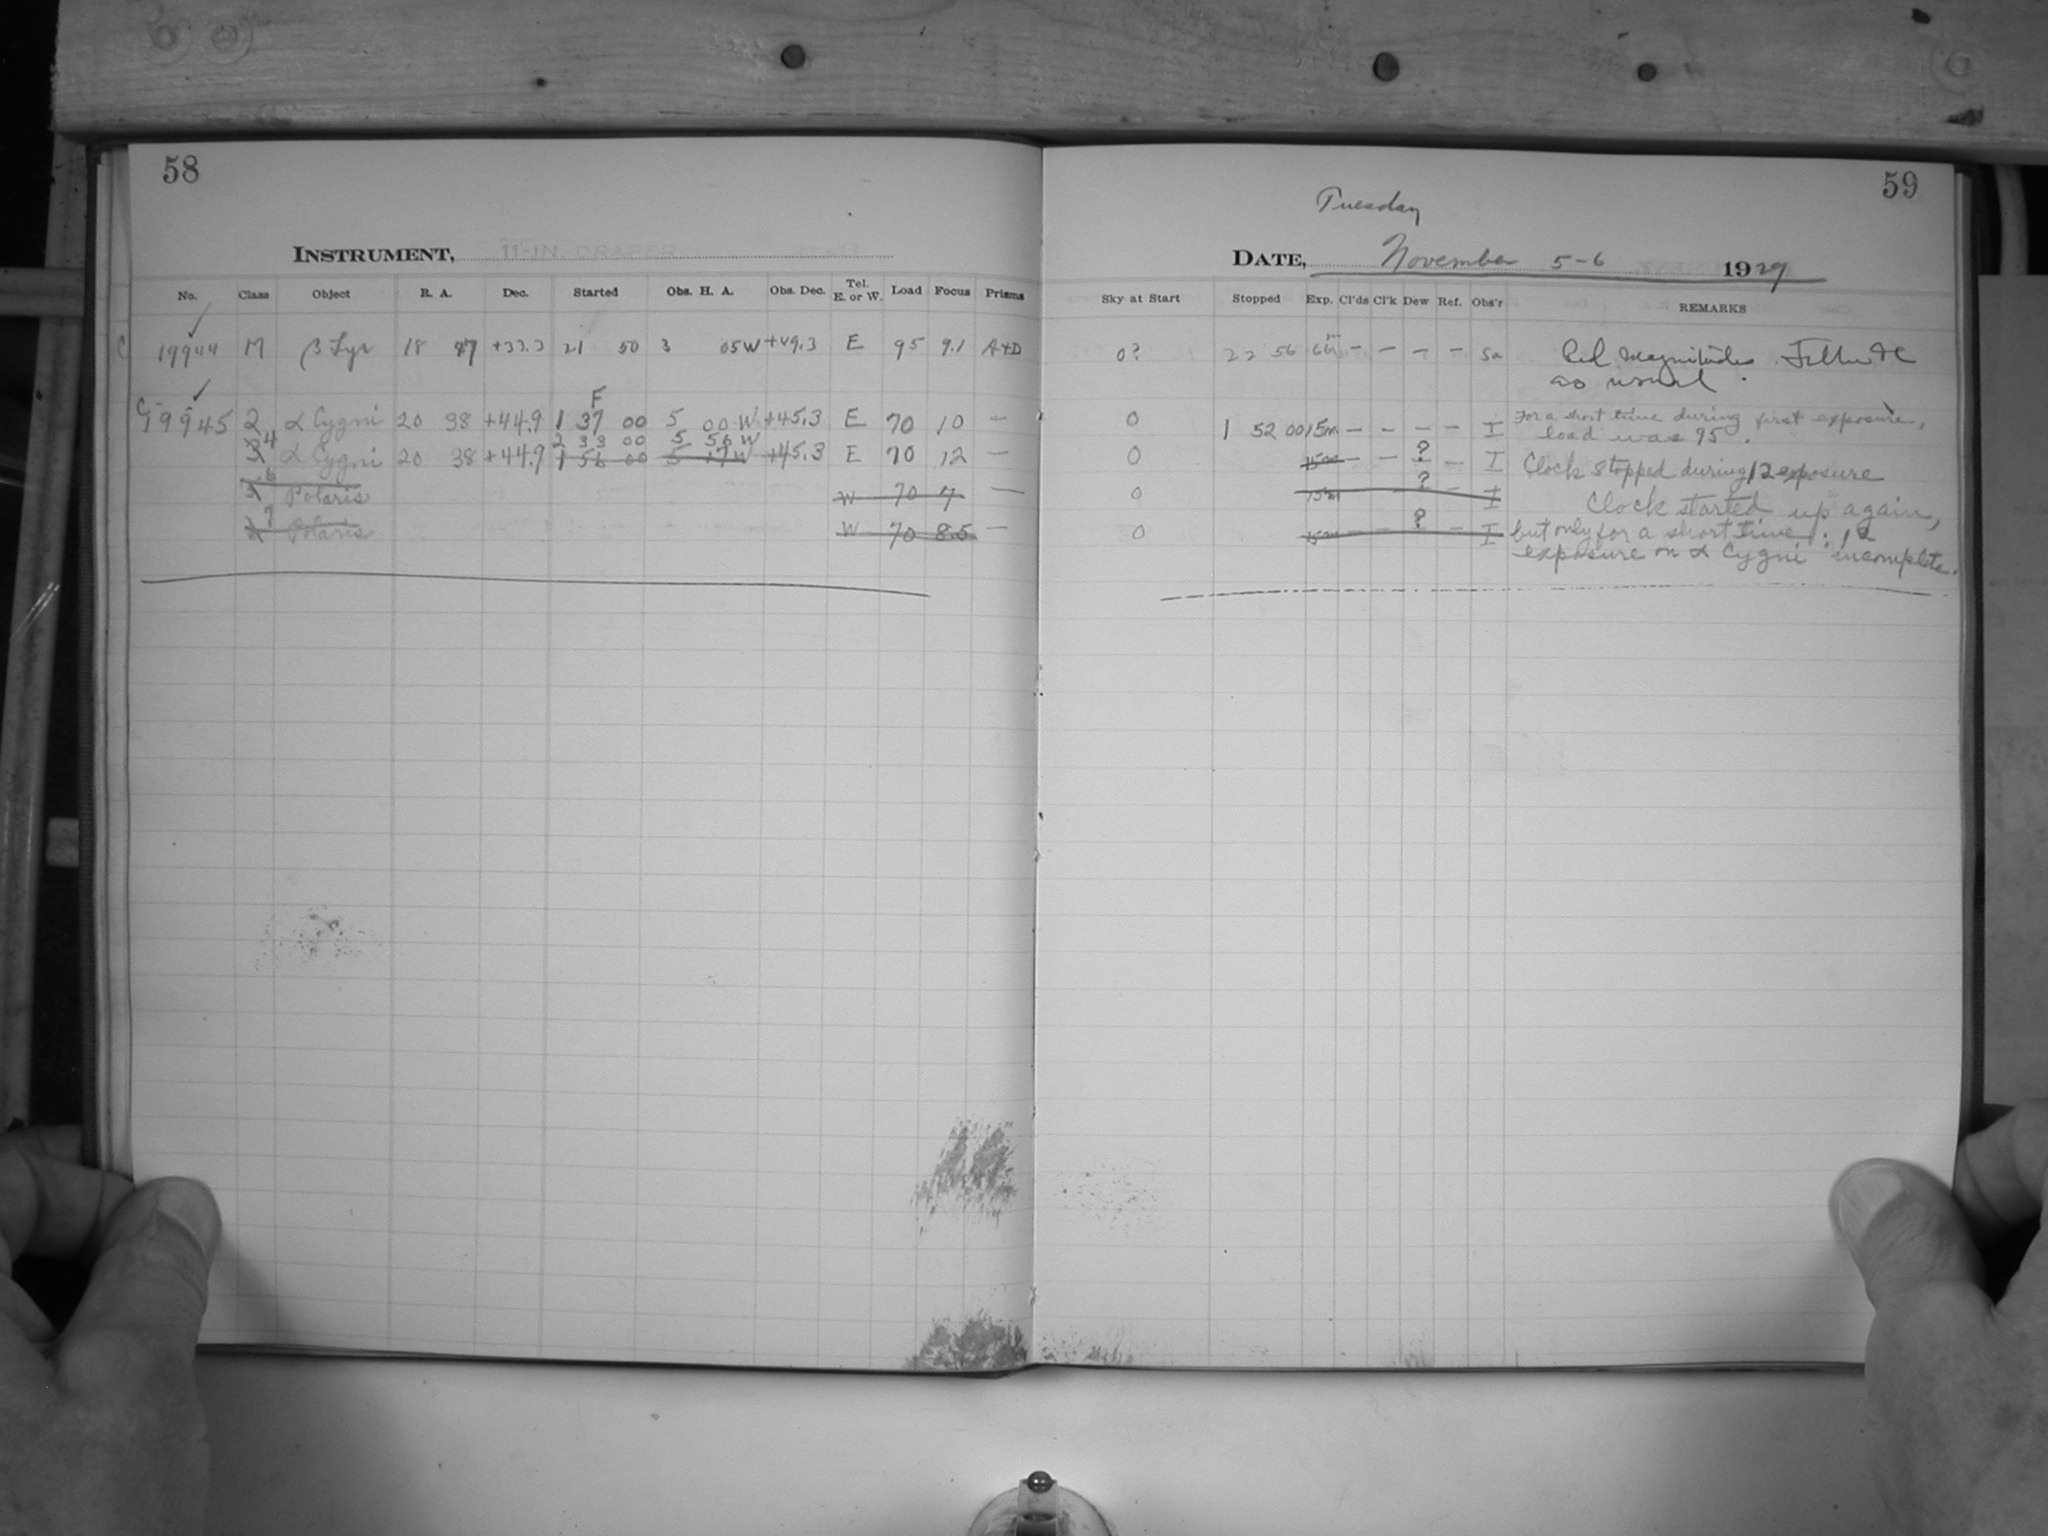 58
INSTRUMENT, 11-IN. DRAPER
No. Class Object R. A. Dec. Started Obs. H. A. Obs. Dec. Tel. E. or W. Load Focus Prisms
C 19944 M β Lyr 18 47 +33.3 21 50 3 05W +49.3 E 95 9.1 A+D
F
C 19945 2 α Cygni 20 38 +44.9 1 37 00 5 00 W +45.3 E 70 10 —
2 33 00 5 56 W
4 α Cygni 20 38 +44.9 1 56 00 5 17 W +45.3 E 70 12 —
6 Polaris W 70 7 —
7 Polaris W 70 8.5 —
59
Tuesday
DATE, November 5-6 1929
Sky at Start Stopped Exp. Cl'ds Cl'k Dew Ref. Obs'r REMARKS
0? 22 56 66m — — — — Sa Red Magnitudes.
as usual.
0 1 52 00 15m — — — — I For a short time during first exposure,
load was 95.
0 15m — — ? — I Clock stopped during 12 exposure
0 15m ? — I Clock started up again,
0 15m — — ? — I but only for a short time; 12
exposure on α Cygni incomplete.